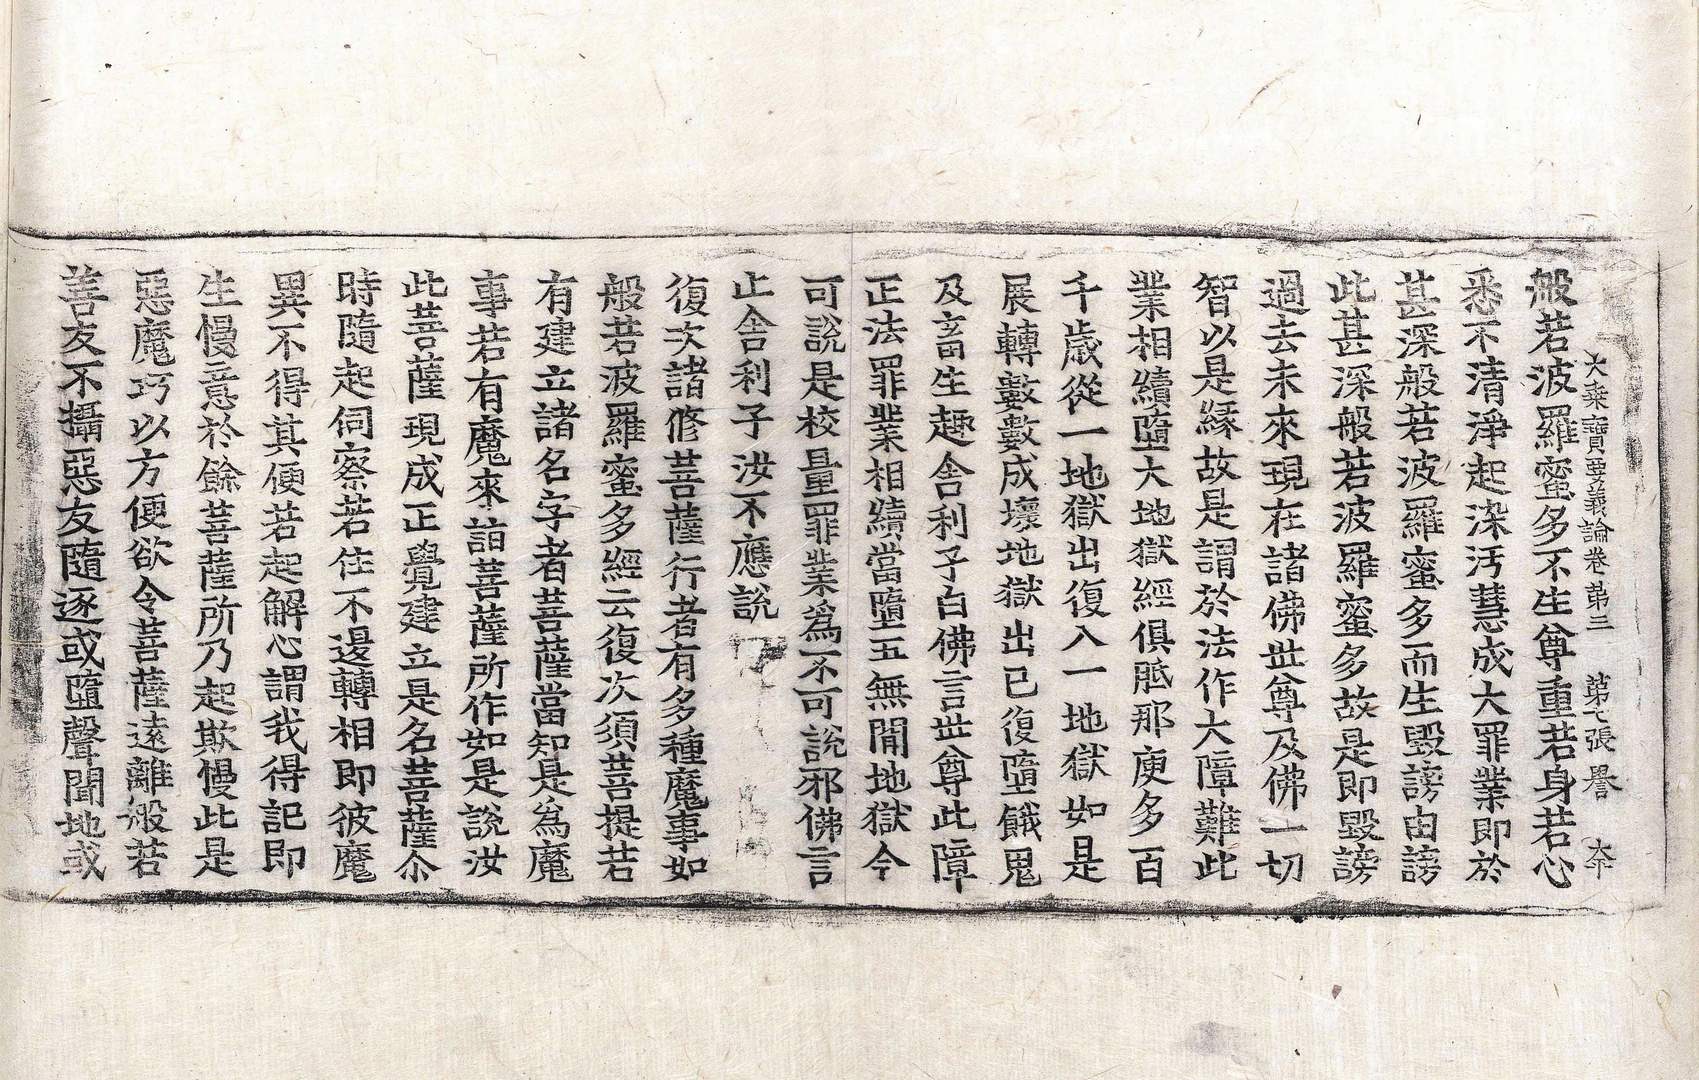 大乘寶要義論卷第三　第七張　譽　夲
般若波羅蜜多不生尊重若身若心
悉不清淨起染汚慧成大罪業即於
甚深般若波羅蜜多而生毀謗由謗
此甚深般若波羅蜜多故是即毀謗
過去未來現在諸佛世尊及佛一切
智以是縁故是謂於法作大障難此
業相續墮大地獄經俱胝那庾多百
千歲從一地獄出復入一地獄如是
展轉數數成壞地獄出已復墮餓鬼
及畜生趣舍利子白佛言世尊此障
正法罪業相續當墮五無間地獄今
可說是校量罪業爲不可說邪佛言
止舍利子汝不應說
復次諸修菩薩行者有多種魔事如
般若波羅蜜多經云復次須菩提若
有建立諸名字者菩薩當知是爲魔
事若有魔來詣菩薩所作如是說汝
此菩薩現成正覺建立是名菩薩尒
時隨起伺察若住不退轉相即彼魔
異不得其便若起解心謂我得記即
生慢意於餘菩薩所乃起欺慢此是
惡魔巧以方便欲令菩薩遠離般若
善友不攝惡友隨逐或墮聲聞地或